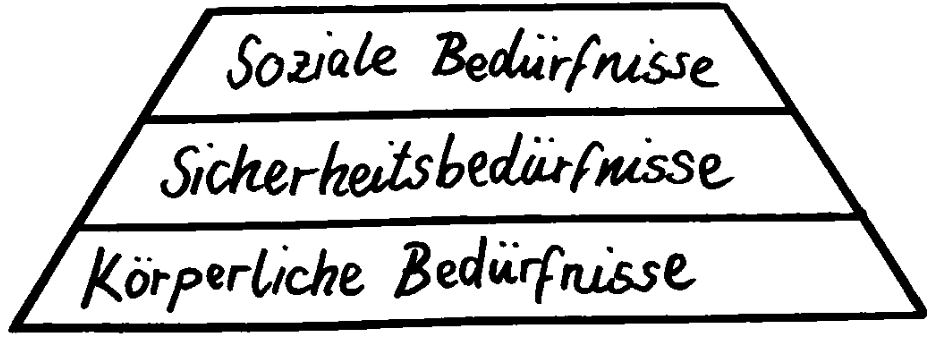 Soziale Bedürfnisse
Sicherheitsbedürfnisse
Körperliche Bedürfnisse